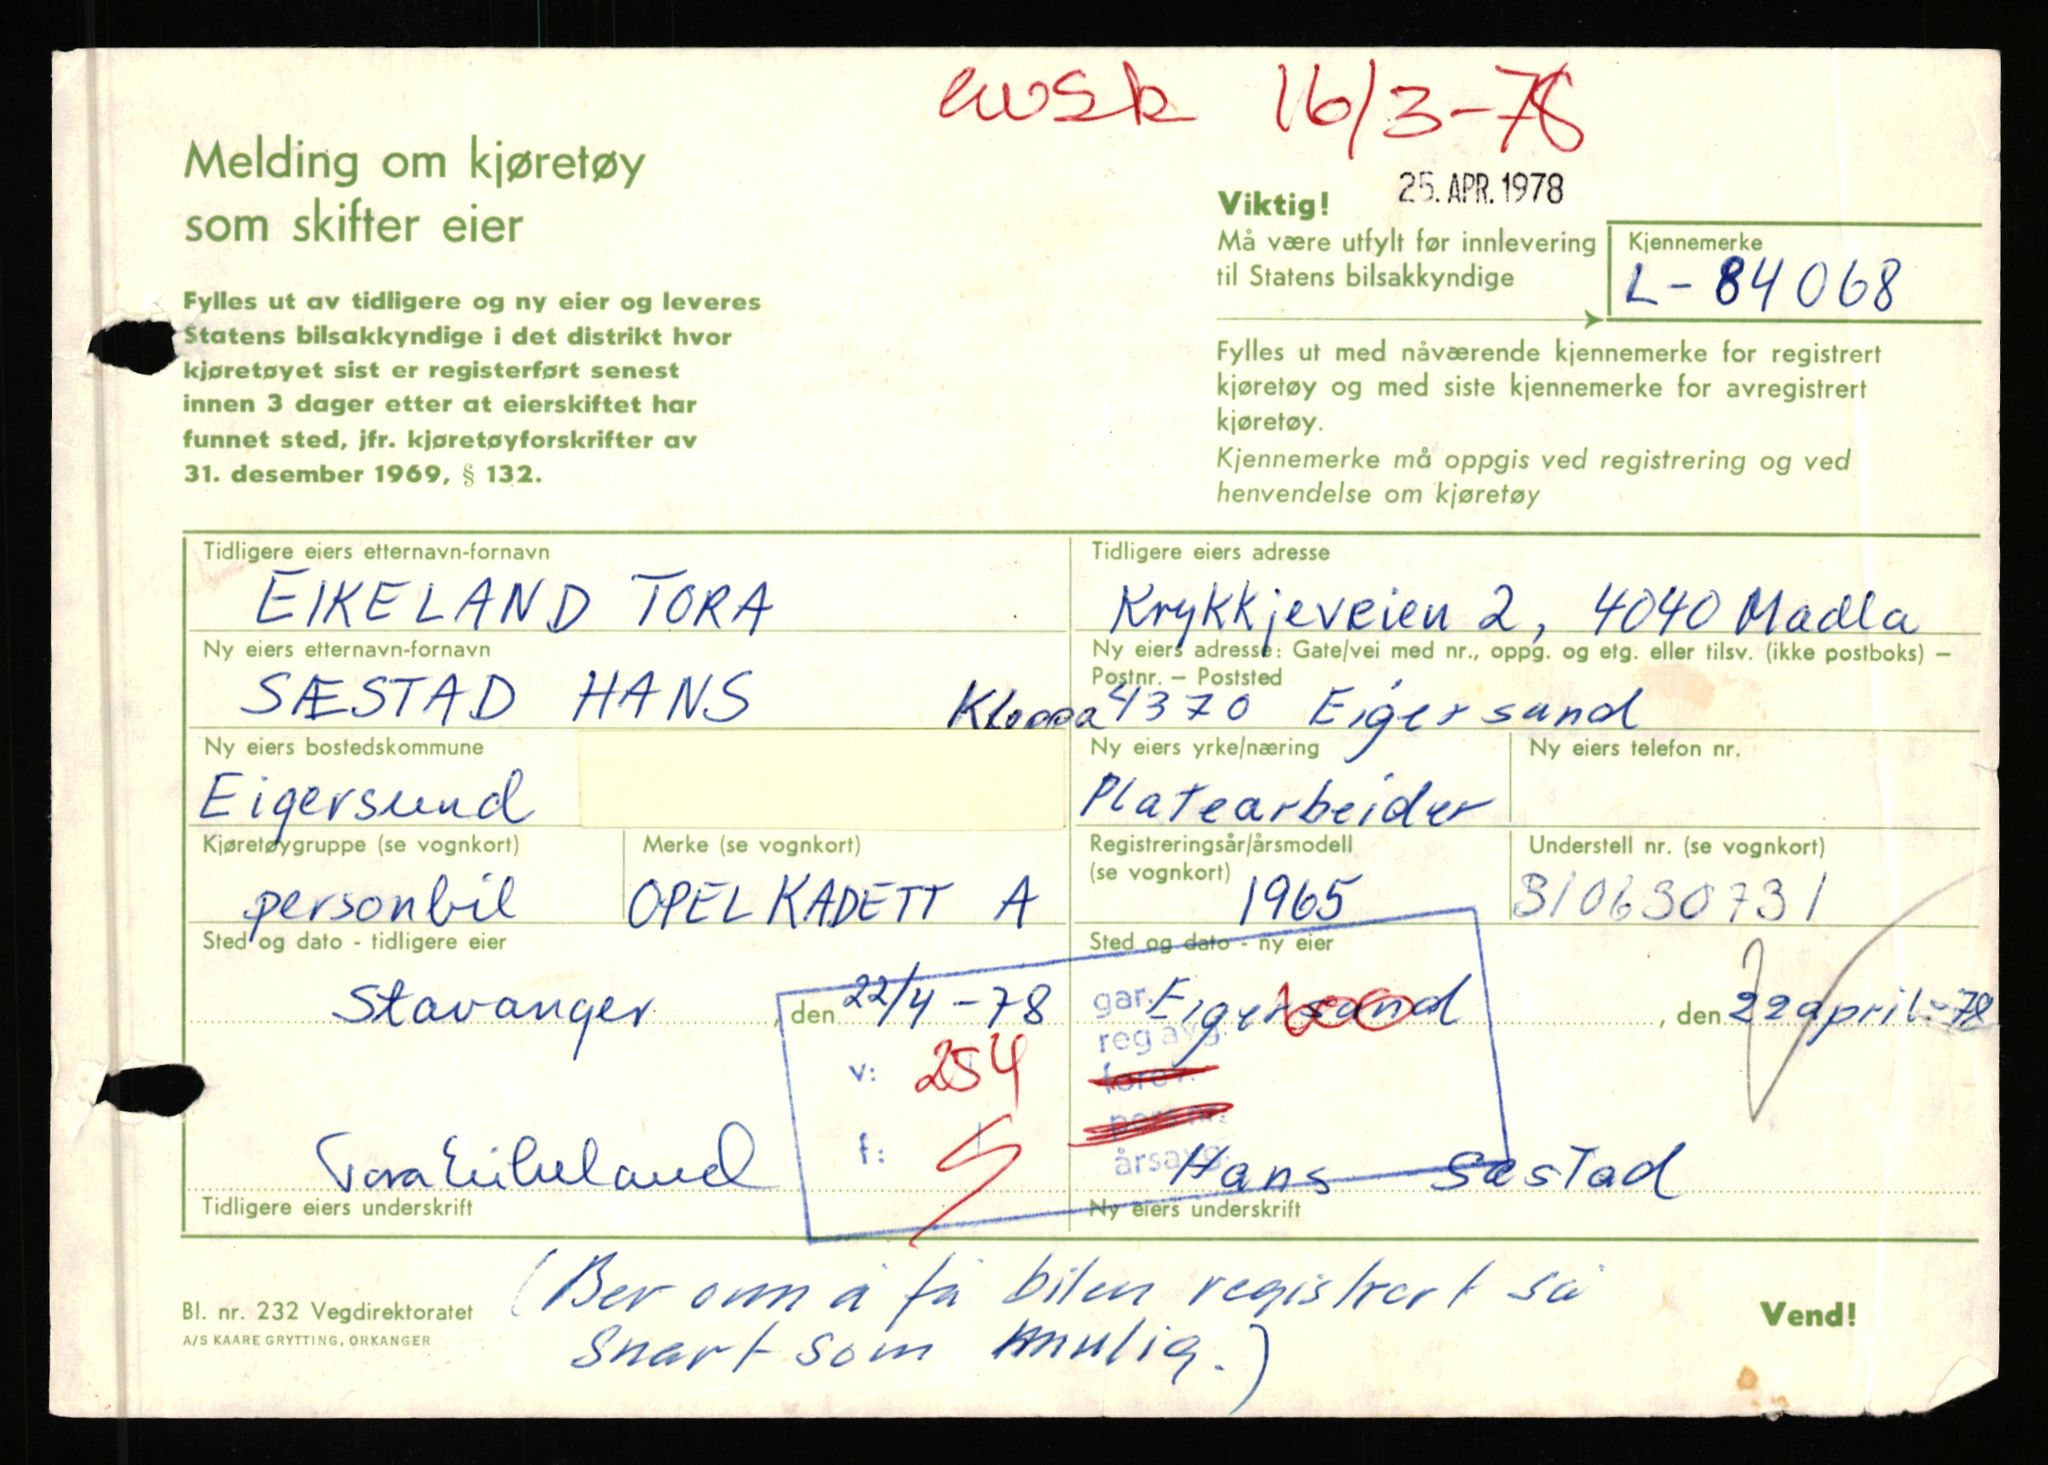 avsk 16/3-78
Melding om kjøretøy
som skifter eier
Fylles ut av tidligere og ny eier og leveres
Statens bilsakkyndige i det distrikt hvor
kjøretøyet sist er registerført senest
innen 3 dager etter at eierskiftet har
funnet sted, jfr. kjøretøyforskrifter av
31. desember 1969, § 132.
25. APR. 1978
Viktig!
Må være utfylt før innlevering
til Statens bilsakkyndige
Kjennemerke
L-84068
Fylles ut med nåværende kjennemerke for registrert
kjøretøy og med siste kjennemerke for avregistrert
kjøretøy.
Kjennemerke må oppgis ved registrering og ved
henvendelse om kjøretøy
Tidligere eiers etternavn-fornavn
EIKELAND TORA
Tidligere eiers adresse
Krykkjeveien 2, 4040 Madla
Ny eiers etternavn-fornavn
SÆSTAD HANS
Ny eiers adresse: Gate/vei med nr., oppg. og etg. eller tilsv. (ikke postboks) –
Postnr. – Poststed
4370 Eigersund
Ny eiers bostedskommune
Eigersund
Ny eiers yrke/næring
Platearbeider
Ny eiers telefon nr.
Kjøretøygruppe (se vognkort)
personbil
Merke (se vognkort)
OPEL KADETT A
Registreringsår/årsmodell
(se vognkort)
1965
Understell nr. (se vognkort)
310630731
Sted og dato - tidligere eier
Stavanger, den 22/4-78
Sted og dato - ny eier
Eigersund, den 22 april-78
v: 254
f:
gar.
reg avg.
forev.
pers nr.
årsavg
Tora Eikeland
Tidligere eiers underskrift
Hans Sæstad
Ny eiers underskrift
(Ber om å få bilen registrert så
snart som mulig.)
Bl. nr. 232 Vegdirektoratet
A/S KAARE GRYTTING, ORKANGER
Vend!